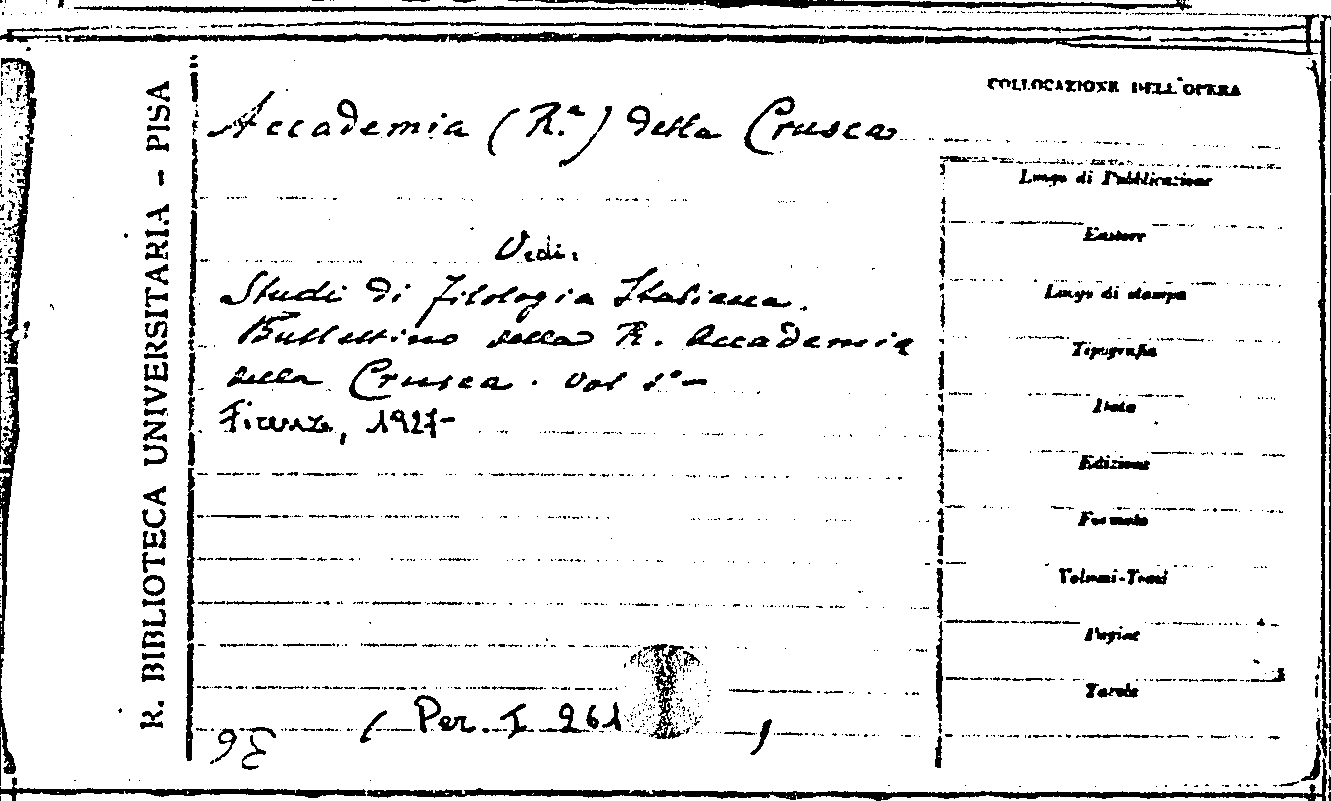 R. BIBLIOTECA UNIVERSITARIA - PISA
COLLOCAZIONE DELL'OPERA
Accademia (R.ª) della Crusca
Vedi:
Studi di filologia Italiana.
Bullettino della R. Accademia
della Crusca. Vol 1° -
Firenze, 1927-
Luogo di Pubblicazione
Editore
Luogo di stampa
Tipografia
Data
Edizione
Formato
Volumi-Tomi
Pagine
Tavole
( Per. I 261 )